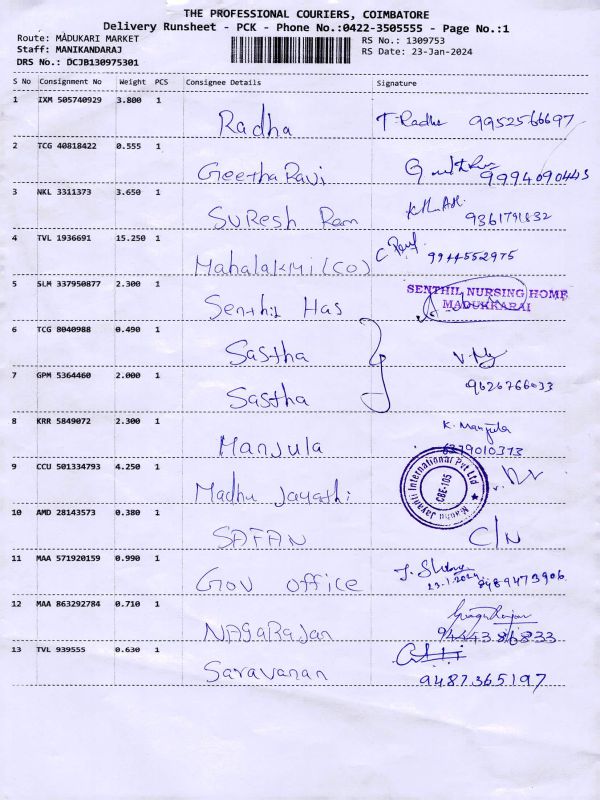 THE PROFESSIONAL COURIERS, COIMBATORE
Delivery Runsheet - PCK - Phone No.:0422-3505555 - Page No.:1
Route: MADUKARI MARKET
RS No.: 1309753
Staff: MANIKANDARAJ
RS Date: 23-Jan-2024
DRS No.: DCJB130975301
S No Consignment No Weight PCS Consignee Details Signature
1 IXM 505740929 3.800 1 Radha T. Radha 9952566697
2 TCG 40818422 0.555 1 Geetha Ravi 9994090443
3 NKL 3311373 3.650 1 Suresh Ram 9361791832
4 TVL 1936691 15.250 1 Mahalakmi (Co) 9944552975
5 SLM 337950877 2.300 1 Senthil Has SENTHIL NURSING HOME
MADUKKARAI
6 TCG 8040988 0.490 1 Sastha
7 GPM 5364460 2.000 1 Sastha 9626766033
8 KRR 5849072 2.300 1 Manjula K. Manjula
6379010373
9 CCU 501334793 4.250 1 Madhu Jayathi Madhu Jayanti International Pvt Ltd
CBE-105
10 AMD 28143573 0.380 1 SAFAN C/N
11 MAA 571920159 0.990 1 Gov office 23.1.2024 8489473906
12 MAA 863292784 0.710 1 NAGARAJan 94443 86833
13 TVL 939555 0.630 1 Saravanan 9487365197